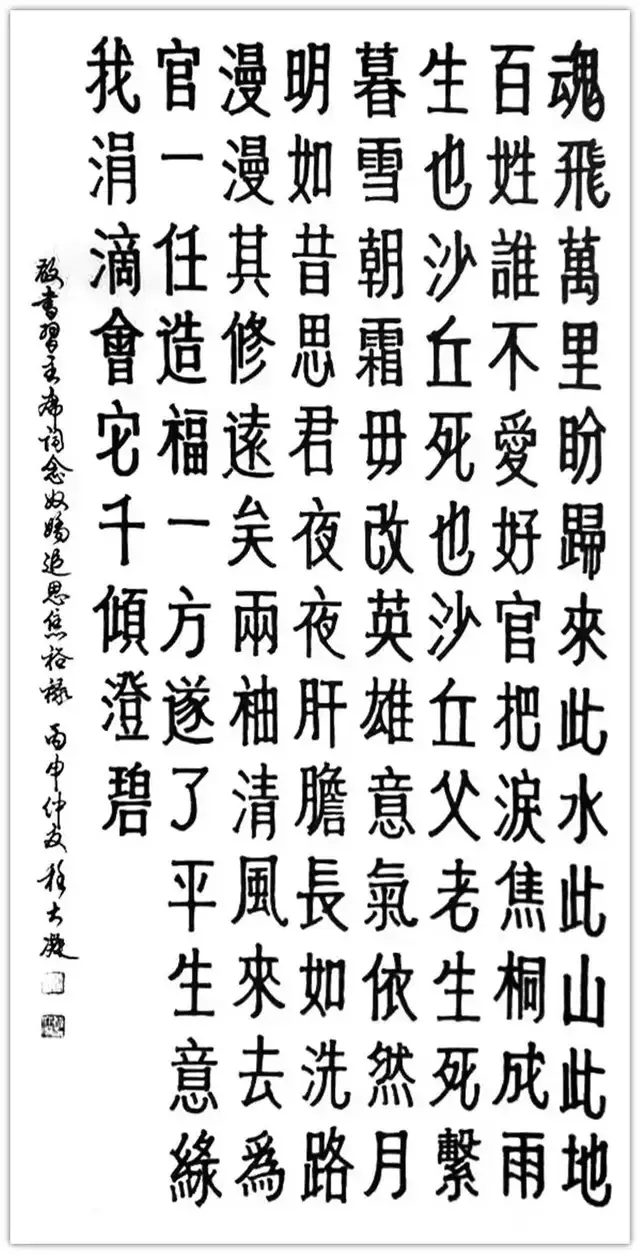 魂飛萬里盼歸來此水此山此地
百姓誰不愛好官把淚焦桐成雨
生也沙丘死也沙丘父老生死繫
暮雪朝霜毋改英雄意氣依然月
明如昔思君夜夜肝膽長如洗路
漫漫其修遠矣兩袖清風來去為
官一任造福一方遂了平生意綠
我涓滴會它千傾澄碧
敬書習主席詞念奴嬌追思焦裕祿 丙申仲夏 程大凝